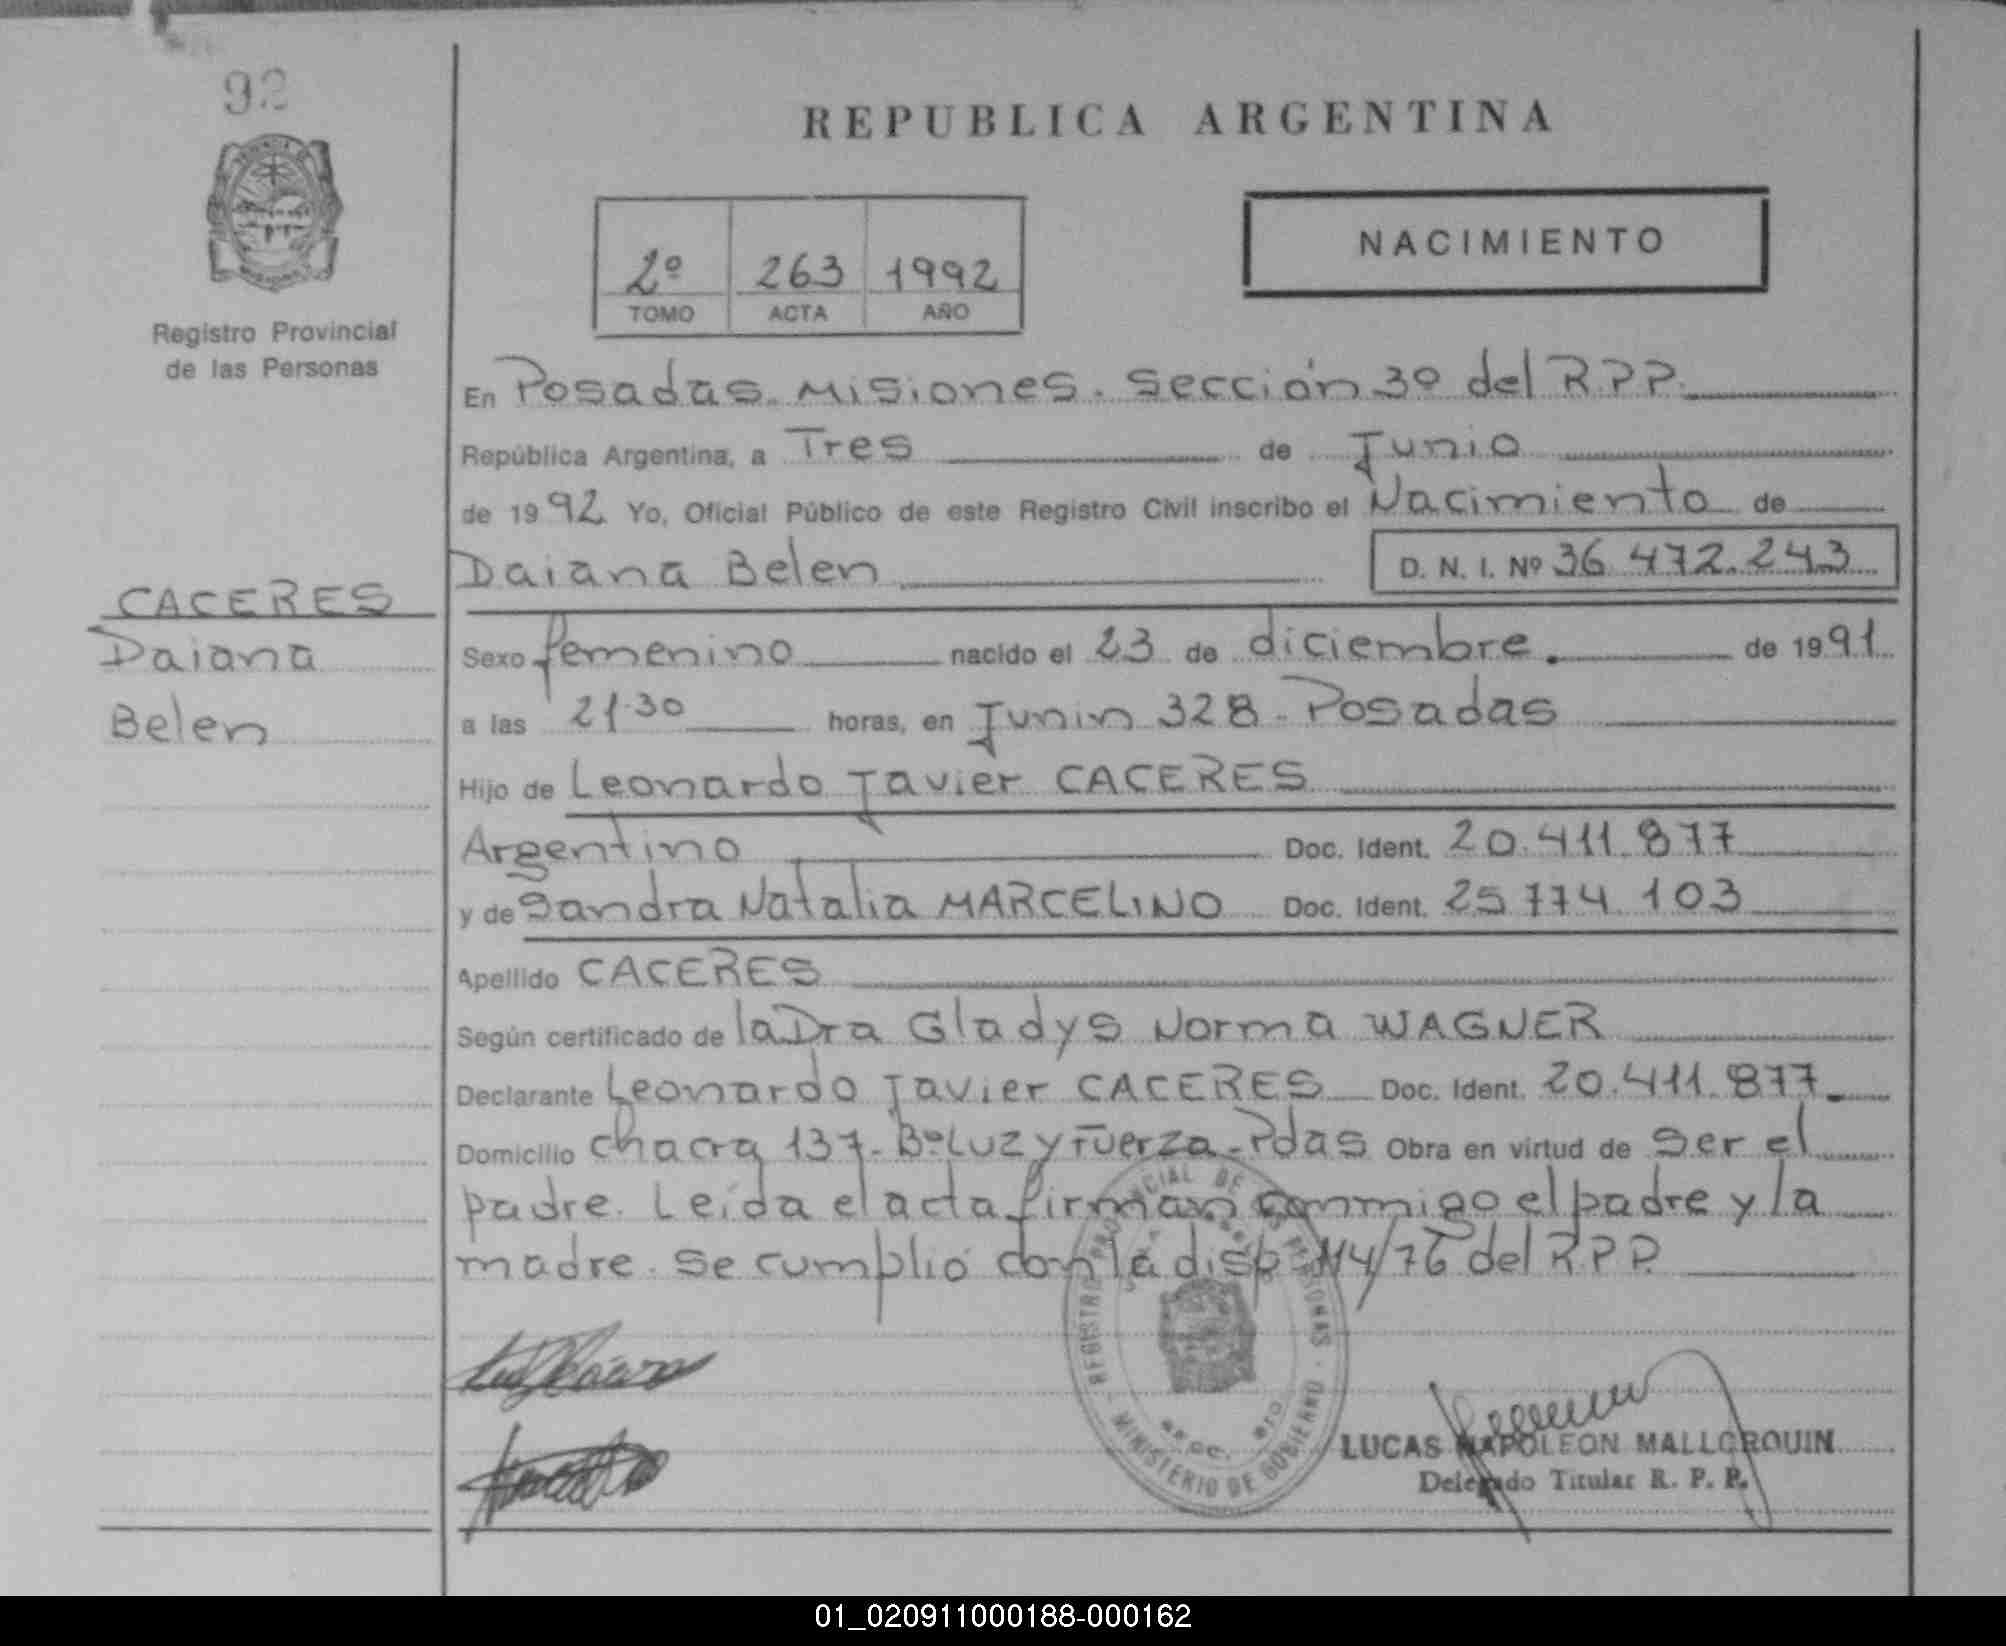 92
REPUBLICA ARGENTINA
2º 263 1992
TOMO ACTA AÑO
NACIMIENTO
Registro Provincial
de las Personas
En Posadas. Misiones. Sección 3º del R.P.P.
República Argentina, a Tres de Junio
de 1992 Yo, Oficial Público de este Registro Civil inscribo el Nacimiento de
Daiana Belen D. N. I. Nº 36.472.243
CACERES
Daiana
Belen
Sexo femenino nacido el 23 de diciembre. de 1991
a las 21.30 horas, en Junin 328 - Posadas
Hijo de Leonardo Javier CACERES
Argentino Doc. Ident. 20.411.877
y de Sandra Natalia MARCELINO Doc. Ident. 25.774.103
Apellido CACERES
Según certificado de la Dra Gladys Norma WAGNER
Declarante Leonardo Javier CACERES Doc. Ident. 20.411.877.
Domicilio Chacra 137 - Bº Luz y Fuerza - Pdas Obra en virtud de ser el
padre. Leída el acta firman conmigo el padre y la
madre. Se cumplió con la disp. 114/76 del R.P.P.
REGISTRO PROVINCIAL DE LAS PERSONAS - MINISTERIO DE GOBIERNO
LUCAS NAPOLEON MALLORQUIN
Delegado Titular R. P. P.
01_020911000188-000162